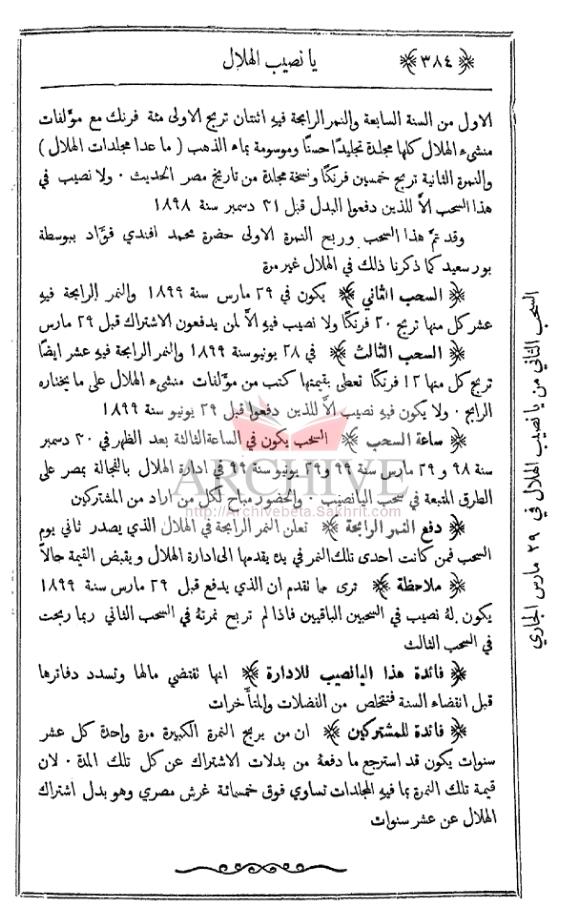 ﴿ ٣٨٤ ﴾
يا نصيب الهلال
الاول من السنة السابعة والنمر الرابحة فيه اثنتان تربح الاولى مئة فرنك مع مؤلفات
منشىء الهلال كلها مجلدة تجليدًا حسنًا وموسومة بماء الذهب ( ما عدا مجلدات الهلال )
والنمرة الثانية تربح خمسين فرنكًا ونسخة مجلدة من تاريخ مصر الحديث ٠ ولا نصيب في
هذا السحب الاَّ للذين دفعوا البدل قبل ٢١ دسمبر سنة ١٨٩٨
وقد تمَّ هذا السحب وربح النمرة الاولى حضرة محمد افندي فؤَاد ببوسطة
بورسعيد كما ذكرنا ذلك في الهلال غير مرة
﴿ السحب الثاني ﴾ يكون في ٢٩ مارس سنة ١٨٩٩ والنمر الرابحة فيه
عشر كل منها تربح ٢٠ فرنكًا ولا نصيب فيه الاَّ لمن يدفعون الاشتراك قبل ٢٩ مارس
﴿ السحب الثالث ﴾ في ٢٨ يونيو سنة ١٨٩٩ والنمر الرابحة فيه عشر ايضًا
تربح كل منها ١٢ فرنكًا تعطى بقيمتها كتب من مؤلفات منشىء الهلال على ما يختاره
الرابح ٠ ولا يكون فيه نصيب الاَّ للذين دفعوا قبل ٢٩ يونيو سنة ١٨٩٩
﴿ ساعة السحب ﴾ السحب يكون في الساعة الثالثة بعد الظهر في ٢٠ دسمبر
سنة ٩٨ و ٢٩ مارس سنة ٩٩ و٢٩ يونيو سنة ٩٩ في ادارة الهلال بالفجالة بمصر على
الطرق المتبعة في سحب اليانصيب ٠ والحضور مباح لكل من اراد من المشتركين
﴿ دفع النمر الرابحة ﴾ تعلن النمر الرابحة في الهلال الذي يصدر ثاني يوم
السحب فمن كانت احدى تلك النمر في يده يقدمها الى ادارة الهلال ويقبض القيمة حالاً
﴿ ملاحظة ﴾ ترى مما تقدم ان الذي يدفع قبل ٢٩ مارس سنة ١٨٩٩
يكون لهُ نصيب في السحبين الباقيين فاذا لم تربح نمرتهُ في السحب الثاني ربما ربحت
في السحب الثالث
﴿ فائدة هذا اليانصيب للادارة ﴾ انها تقتضي مالها وتسدد دفاترها
قبل انقضاء السنة فتتخلص من الفضلات والمتأَخرات
﴿ فائدة للمشتركين ﴾ ان من يربح النمرة الكبيرة مرة واحدة كل عشر
سنوات يكون قد استرجع ما دفعهُ من بدلات الاشتراك عن كل تلك المدة ٠ لان
قيمة تلك النمرة بما فيه المجلدات تساوي فوق خمسمائة غرش مصري وهو بدل اشتراك
الهلال عن عشر سنوات
السحب الثاني من يا نصيب الهلال في ٢٩ مارس الجاري
ARCHIVE
http://Archivebeta.Sakhrit.com